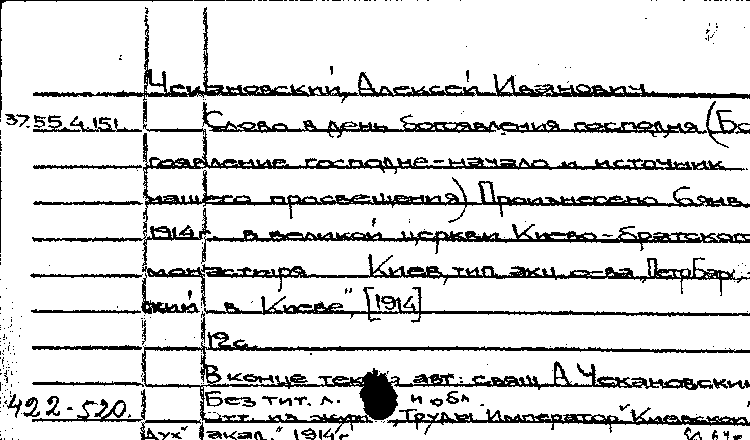 Чекановский, Алексей Иванович
37.55.4.151. Слово в день богоявления господня (Бо
гоявление господне-начало и источник
нашего просвещения) Произнесено 6 янв.
1914г. в великой церкви Киево-братского
монастыря Киев, тип. акц. о-ва „Петр Бар
ский в Киеве", [1914]
12с.
В конце текста авт: свящ. А. Чекановский
Без тит. л. и обл.
422-520. Отт. из журн. „Труды Император" Киевской
дух" акад." 1914г